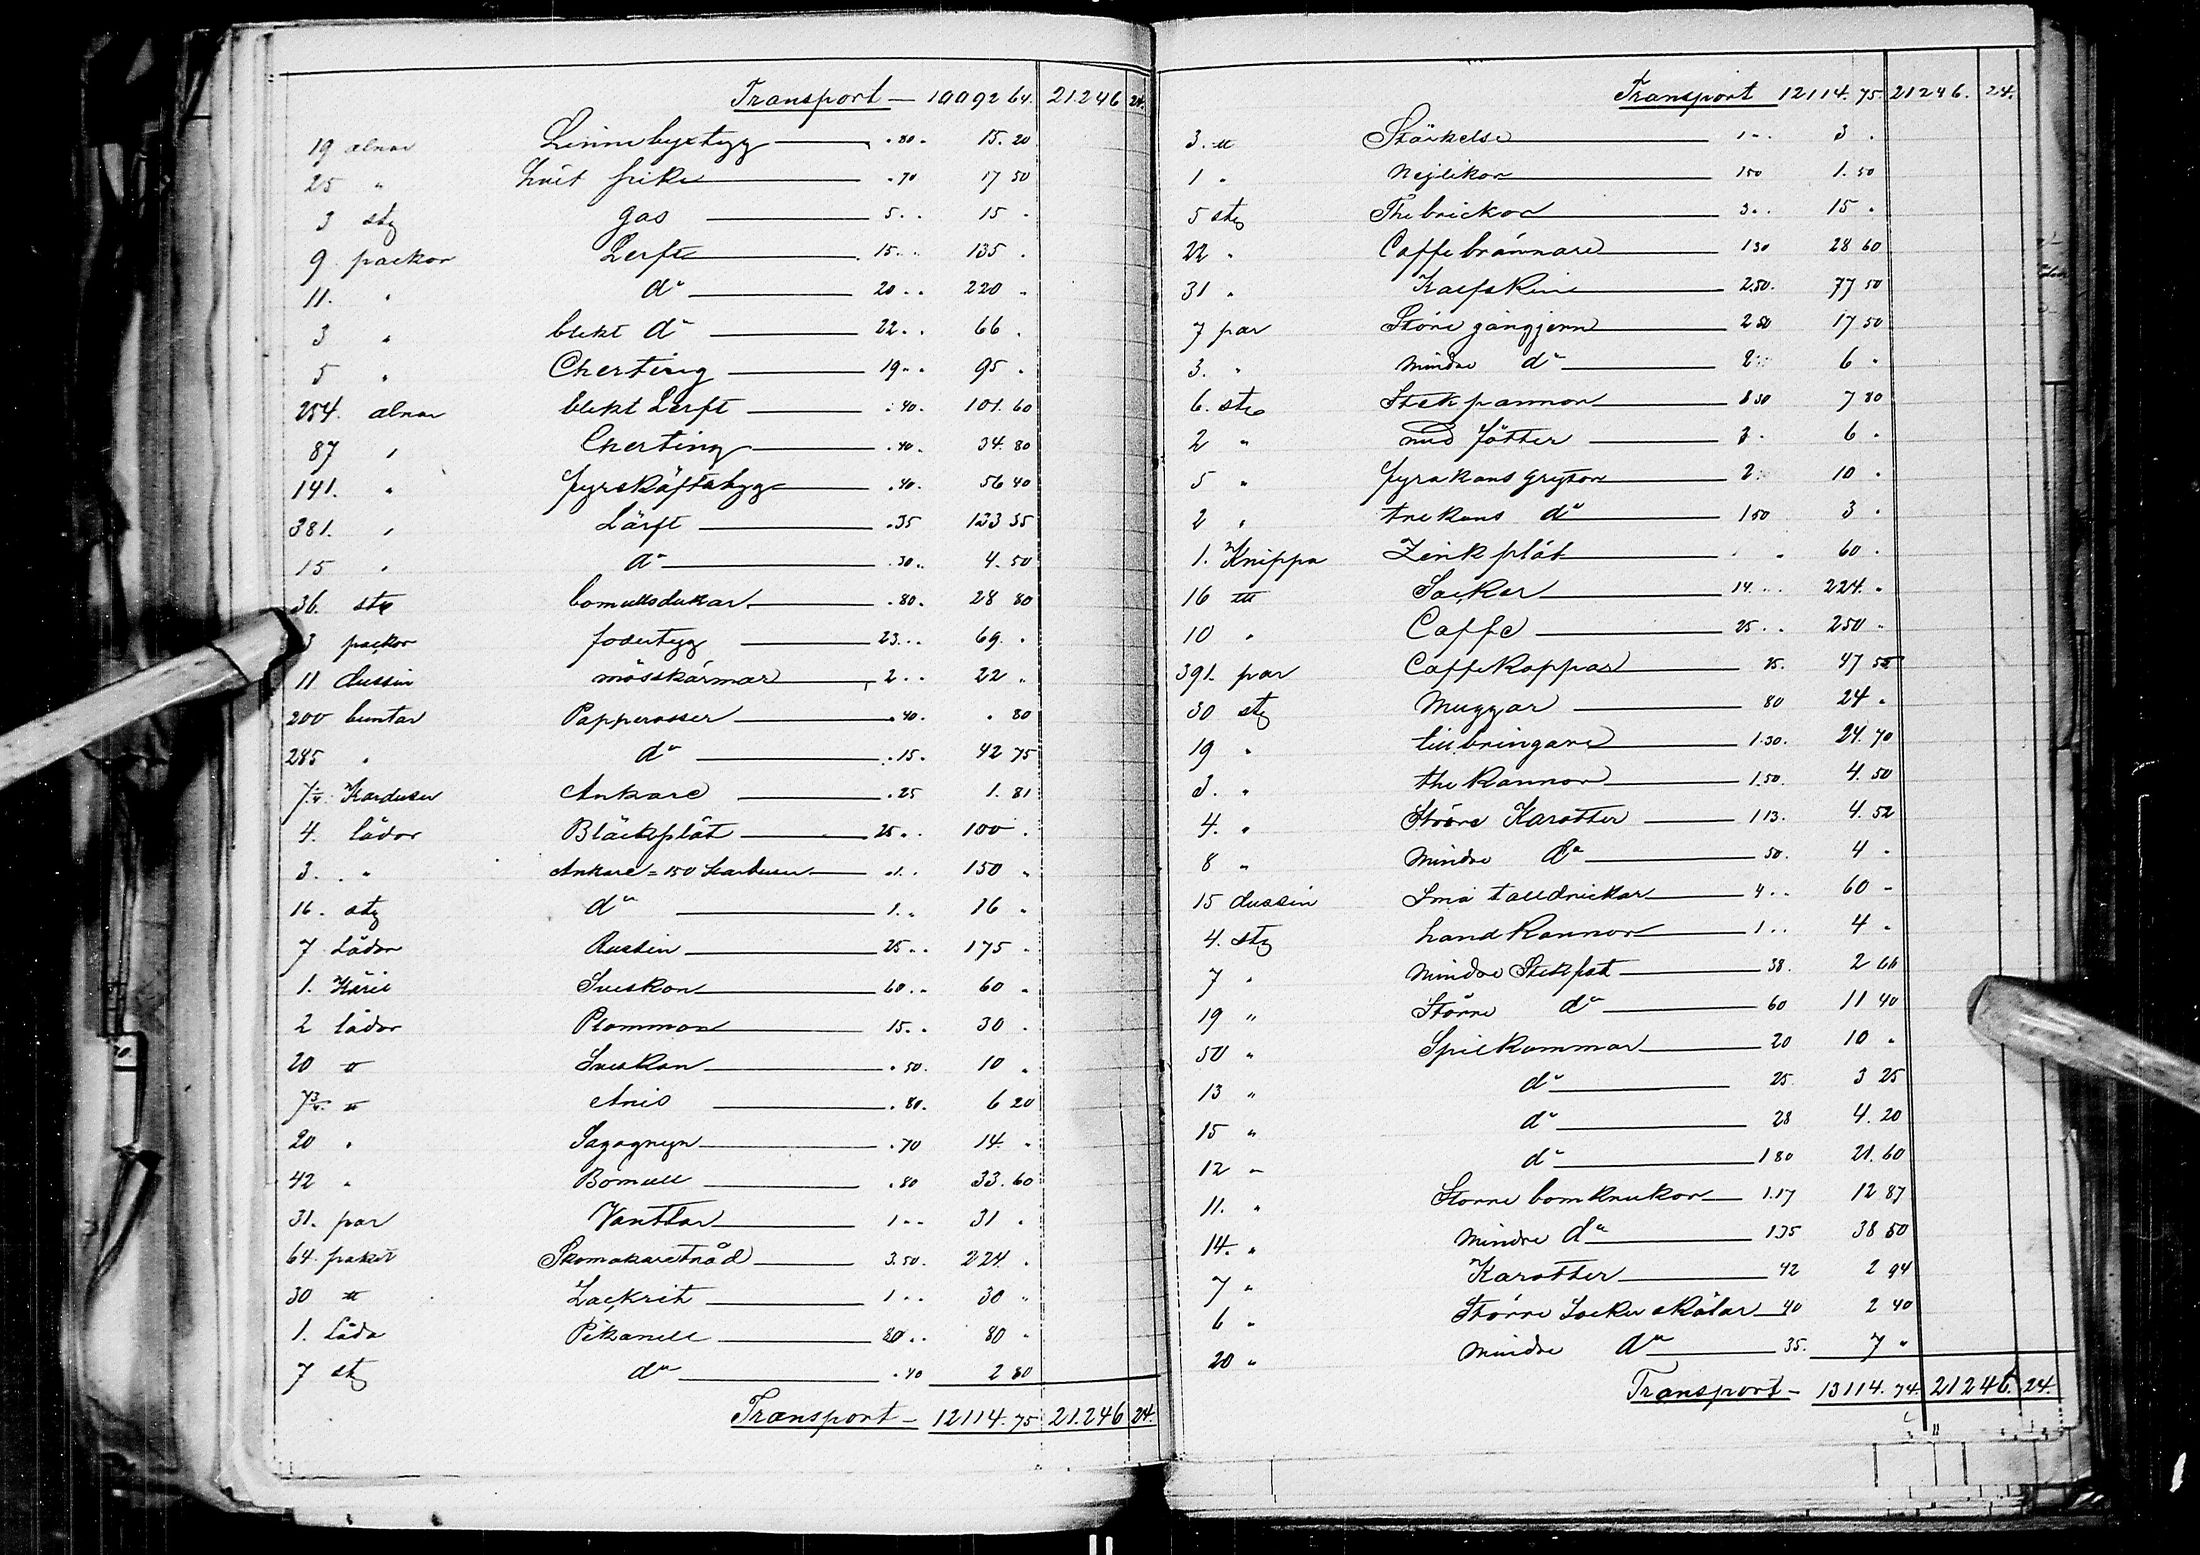 Transport — 10092 64. 21.246 24.
19 alnar Linne byxtyg .80. 15.20
25 " hvit frike .70 17 50
3 stg gas 5.. 15 .
9 packor Lerft 15... 135 .
11. " do 20.. 220 .
3 " blekt do 22.. 66 .
5 " Cherting 19.. 95 .
254. alnar blekt Lerft .40. 101.60
87 " Cherting .40. 34.80
141. " fyrskäftstyg .40. 56 40
381. " Lärft .35 133 35
15 " do .30.. 4.50
36. stg bomullsdukar .80. 28 80
3 packor fodertyg 23... 69. .
11 dussin mösskärmar 2.. 22 .
200 buntar Papperosser .40. . 80
285 " do .15. 42 75
7 1/4 Karduser Ankare .25 1.81
4. lådor Bläckplåt 25.. 100 .
3. " Ankare = 150 Karduser .1.. 150 .
16. stg do 1.. 16 .
7 Lådor Russin 25.. 175 .
1. Käril Sveskon 60.. 60 .
2 lådor Plommon 15.. 30 .
20 ℔ Sveskon .50. 10 .
7 3/4 ℔ Anis .80. 6 20
20 " Sagogryn .70 14. .
42 " Bomull .80 33.60
31. par Vanttar 1.. 31 .
64. paket Skomakaretråd 3.50. 224. .
30 ℔ Lackrits 1.. 30 .
1. Låda Pikanell 80.. 80 .
7 stg do .40 2 80
Transport — 12114.75 21.246 24.
Transport 12114.75. 21246. 24.
3. ℔ Stärkelse 1.. 3 .
1 " Nejlikor 150 1.50
5 stg Thebrickor 3.. 15 .
22 " Caffebrännare 130 28 60
31 " Kalfskinn 2.50. 77 50
7 par Större gångjern 2 50 17 50
3. " mindre do 2.. 6 .
6. stg Stekpannor 1 30 7 80
2 " med fötter 3. 6 .
5 " fyrakans grytor 2. 10 .
2 " trekans do 150 3 .
1. Knippa Zinkplåt . . 60 .
16 ℔ Socker 14... 224. .
10 " Caffe 25.. 250 .
391. par Caffekoppar 25. 47 55
30 stg Muggar 80 24 .
19 " tillbringare 1.30. 24.70
3. " the kannor 1.50. 4.50
4. " Större Karotter 1 13. 4.52
8 " Mindre do 50. 4 .
15 dussin Små talldrickar 4.. 60 -
4. stg handkannor 1.. 4 .
7 " Mindre Stekfat 38. 2 66
19 " Större do 60 11 40
50 " Spilkummar 20 10 .
13 " do 25 3 25
15 " do 28 4.20
12 " do 1 80 21.60
11. " Större bomkrukor 1.17 12 87
14. " Mindre do 135 38 50
7 " Karotter 42 2 94
6 " Större Sockerskålar 40 2 40
20 " Mindre do 35. 7 .
Transport — 13114.74. 21246. 24.